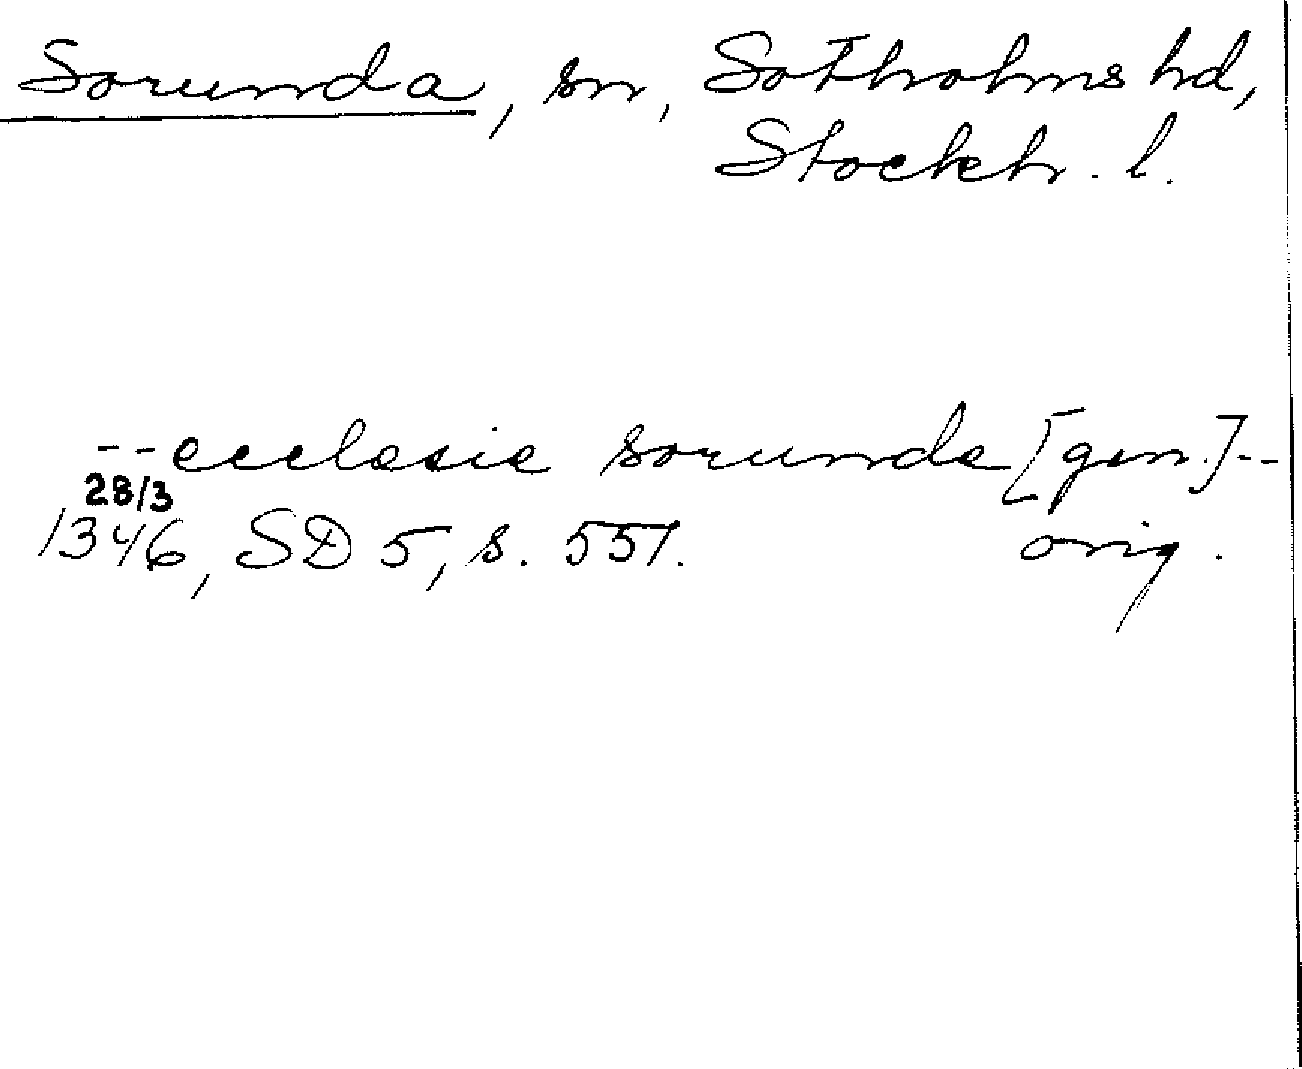 Sorunda, sn, Sotholms hd,
Stockh. l.
--ecclesie sorunde [gen.]--
28/3
1346, SD 5, s. 551. orig.